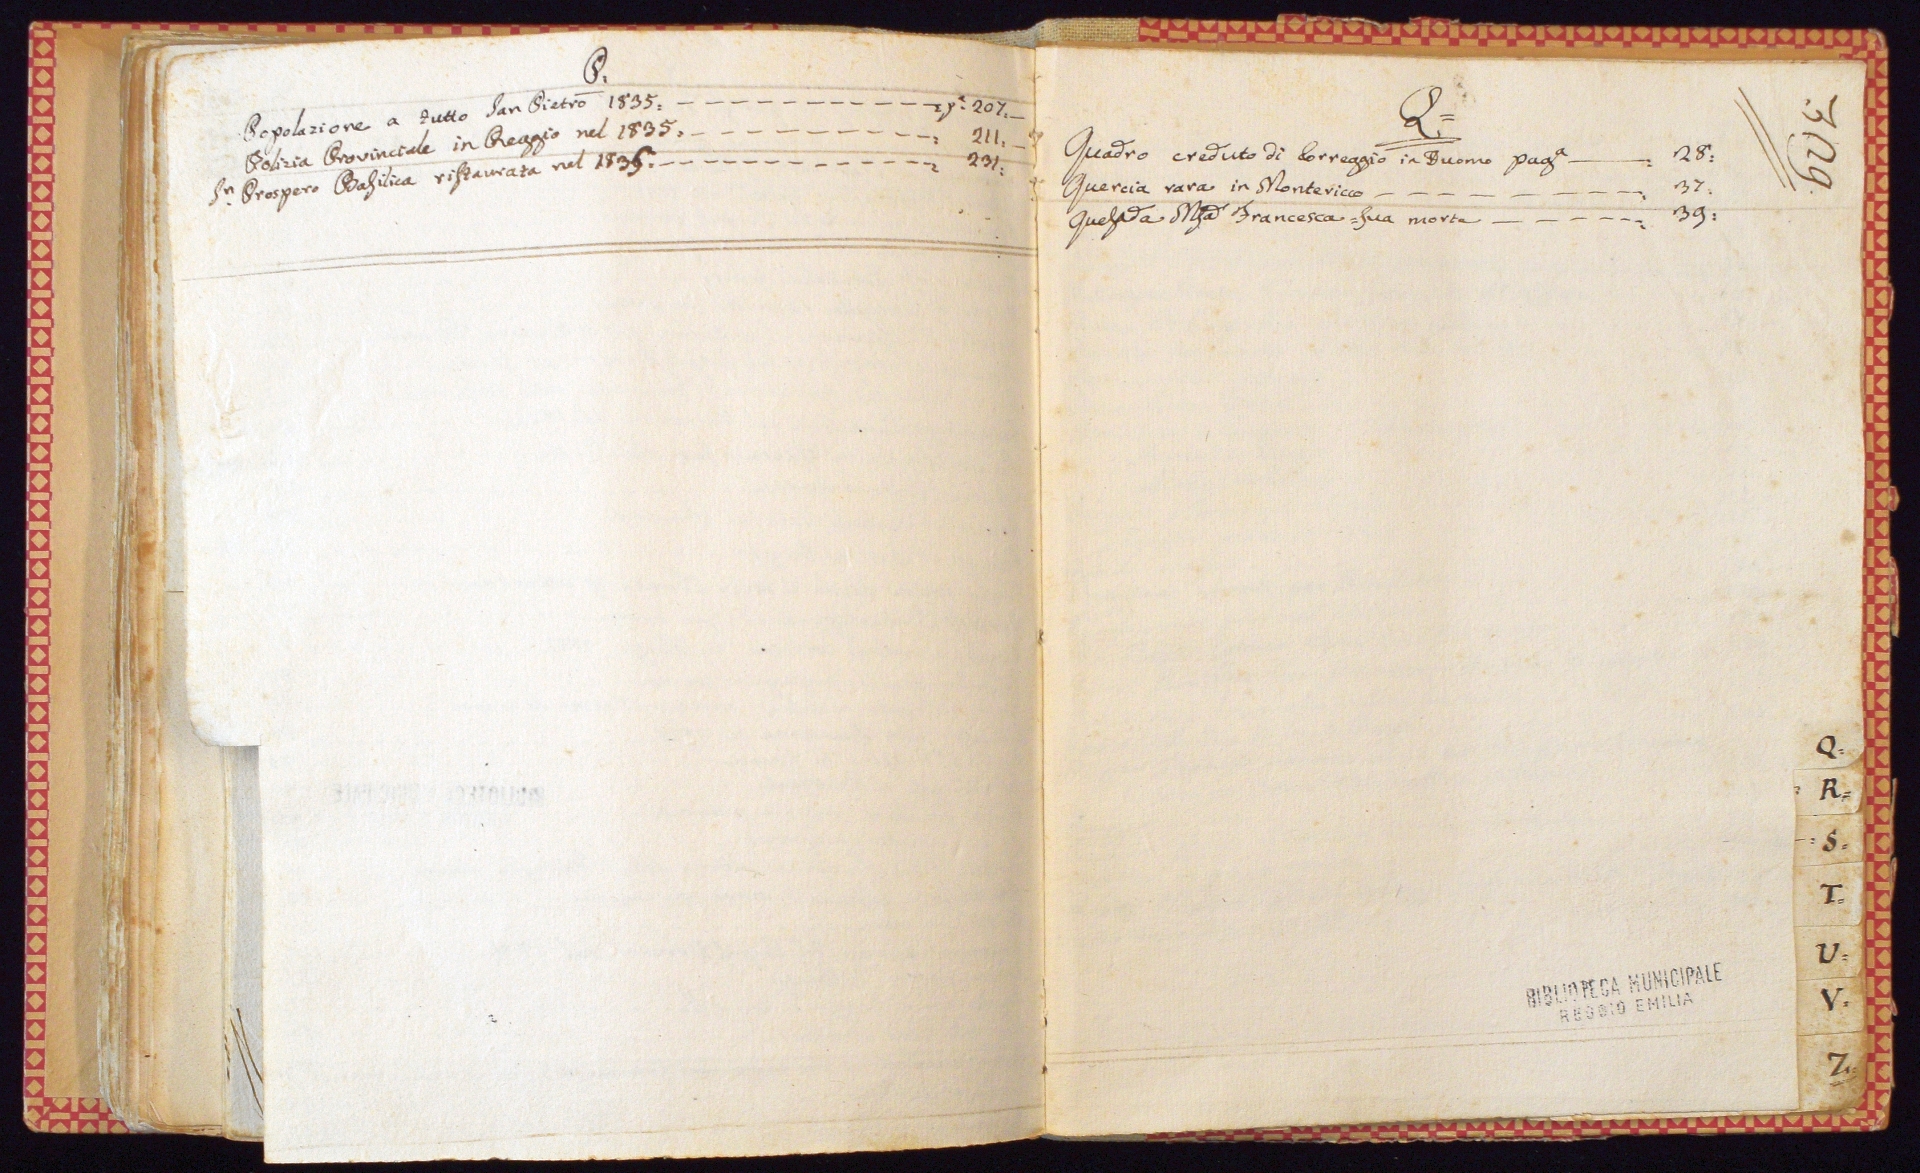 P.
Popolazione a tutto San Pietro 1835: — — — — — — — — — — — = p.ª 207. —
Polizia Provinciale in Reggio nel 1835. — — — — — — — — — : 211. —
Sn. Prospero Basilica ristaurata nel 1835. — — — — — — — — — — : 231:
Q.=
Quadro creduto di Correggio in Duomo pagª ——— : 28:
Quercia rara in Montericco — — — — — — — — : 37.
Quesada Mad. Francesca = sua morte — — — — — : 39:
Q=
R=
S=
T=
U=
V=
Z=
BIBLIOTECA MUNICIPALE
REGGIO EMILIA